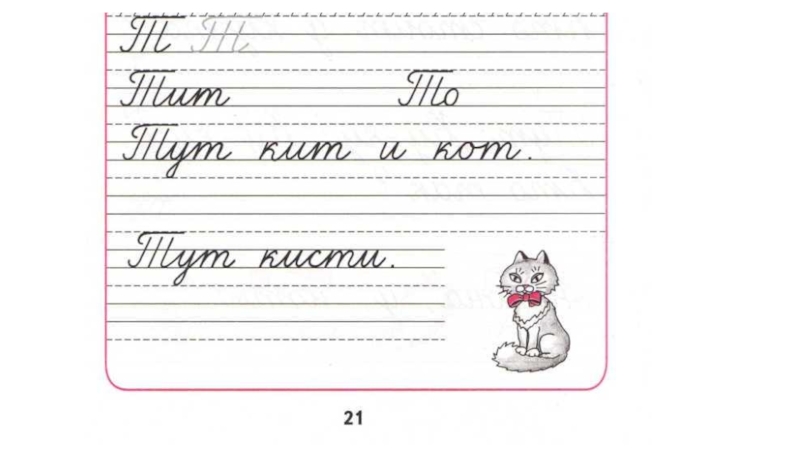 Т Т
Тит То
Тут кит и кот.
Тут кисти.
21